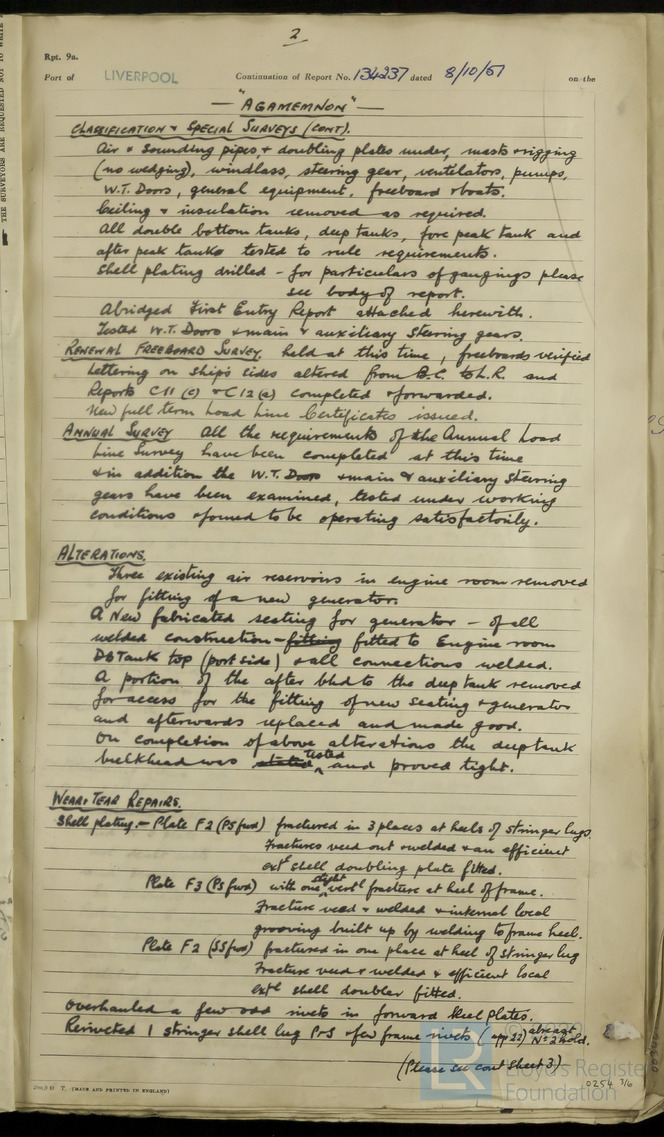 2
Rpt. 9a.
Port of LIVERPOOL Continuation of Report No. 134237 dated 8/10/51 on the
— "AGAMEMNON" —
CLASSIFICATION & SPECIAL SURVEYS (CONT).
Air & Sounding pipes & doubling plates under, masts & rigging
(no wedging), windlass, steering gear, ventilators, pumps,
W.T. Doors, general equipment, freeboard & boats.
Ceiling & insulation removed as required.
All double bottom tanks, deep tanks, fore peak tank and
after peak tanks tested to rule requirements.
Shell plating drilled – for particulars of gaugings please
see body of report.
Abridged First Entry Report attached herewith.
Tested W.T. Doors & main & auxiliary steering gears.
RENEWAL FREEBOARD SURVEY. held at this time, freeboards verified
Lettering on ship's sides altered from B.C. to L.R and
Reports C11 (c) & C12 (a) completed & forwarded.
New full term Load Line Certificates issued.
ANNUAL SURVEY All the requirements of the Annual Load
Line Survey have been completed at this time
& in addition the W.T. Doors & main & auxiliary steering
gears have been examined, tested under working
conditions & found to be operating satisfactorily.
ALTERATIONS.
Three existing air reservoirs in engine room removed
for fitting of a new generator.
A New fabricated seating for generator – of all
welded construction – fitting fitted to Engine room
DB Tank top (port side) & all connections welded.
A portion of the after bhd to the deep tank removed
for access for the fitting of new seating & generator
and afterwards replaced and made good.
On completion of above alterations the deep tank
bulkhead was stated tested and proved tight.
WEAR & TEAR REPAIRS.
Shell plating.– Plate F2 (PS fwd) fractured in 3 places at heels of stringer lugs.
Fractures veed out & welded & an efficient
extl shell doubling plate fitted.
Plate F3 (PS fwd) with one slight vertl fracture at heel of frame.
Fracture veed & welded & internal local
grooving built up by welding to frame heel.
Plate F2 (SS fwd) fractured in one place at heel of stringer lug
Fracture veed & welded & efficient local
extl shell doubler fitted.
Overhauled a few odd rivets in forward keel plates.
Reriveted 1 stringer shell lug P&S & few frame rivets (app 22) abreast No 2 hold.
(Please see cont sheet 3)
T. (MADE AND PRINTED IN ENGLAND)
0254 3/6
LR
Lloyd's Register
Foundation